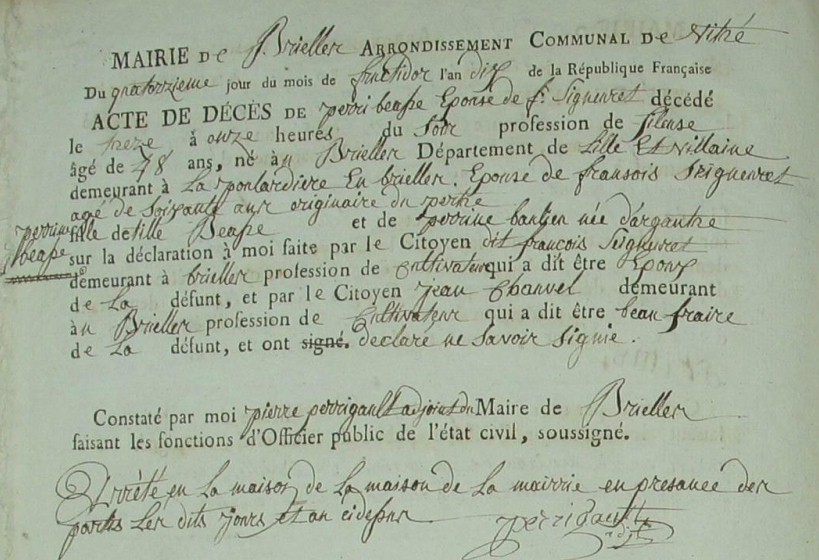 MAIRIE De Brieller ARRONDISSEMENT COMMUNAL De Vitré
Du quatorzieme jour du mois de fructidor l'an dix de la République Française
ACTE DE DÉCÈS DE perri beaße Epouse de f.s Signeuret décédé
le treze à onze heures du soir profession de fileuse
âgé de 48 ans, né à n Brieller Département de Lille Et villaine
demeurant à La pontardiere En brieller. Epouse de fransois Seigneuret
agé de soixante ans originaire du pertre
perrine beaße
fille de fille Beaße et de perrine bantien née d'argantre
sur la déclaration à moi faite par le Citoyen dit francois Signeuret
demeurant à brieller profession de cultivateur qui a dit être Epoux
de La défunt, et par le Citoyen Jean Chanvel demeurant
à n Brieller profession de Cultivateur qui a dit être beau fraire
de La défunt, et ont signé. declaré ne savoir signie.
Constaté par moi pierre perrigault adjoint du Maire de Brieller
faisant les fonctions d'Officier public de l'état civil, soussigné.
Arrété en La maison de La maison de La mairrie en presance der
partis Les dits jours et an cideßus
perrigault
adjt